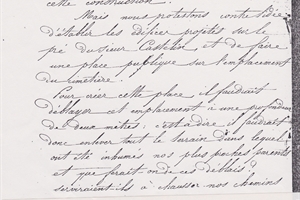 cette construction.
Mais nous protestons contre l'idée
d'établir les dépôts projetés sur le
pré du sieur Castelbou et de faire
une place publique sur l'emplacement
du cimetière.
Pour créer cette place il faudrait
déblayer cet emplacement à une profondeur
de deux mètres, c'est à dire il faudrait
donc enlever tout le terrain dans lequel
ont été inhumés nos plus proches parents
et que ferait-on de ces déblais?
serviraient-ils à chausser nos chemins